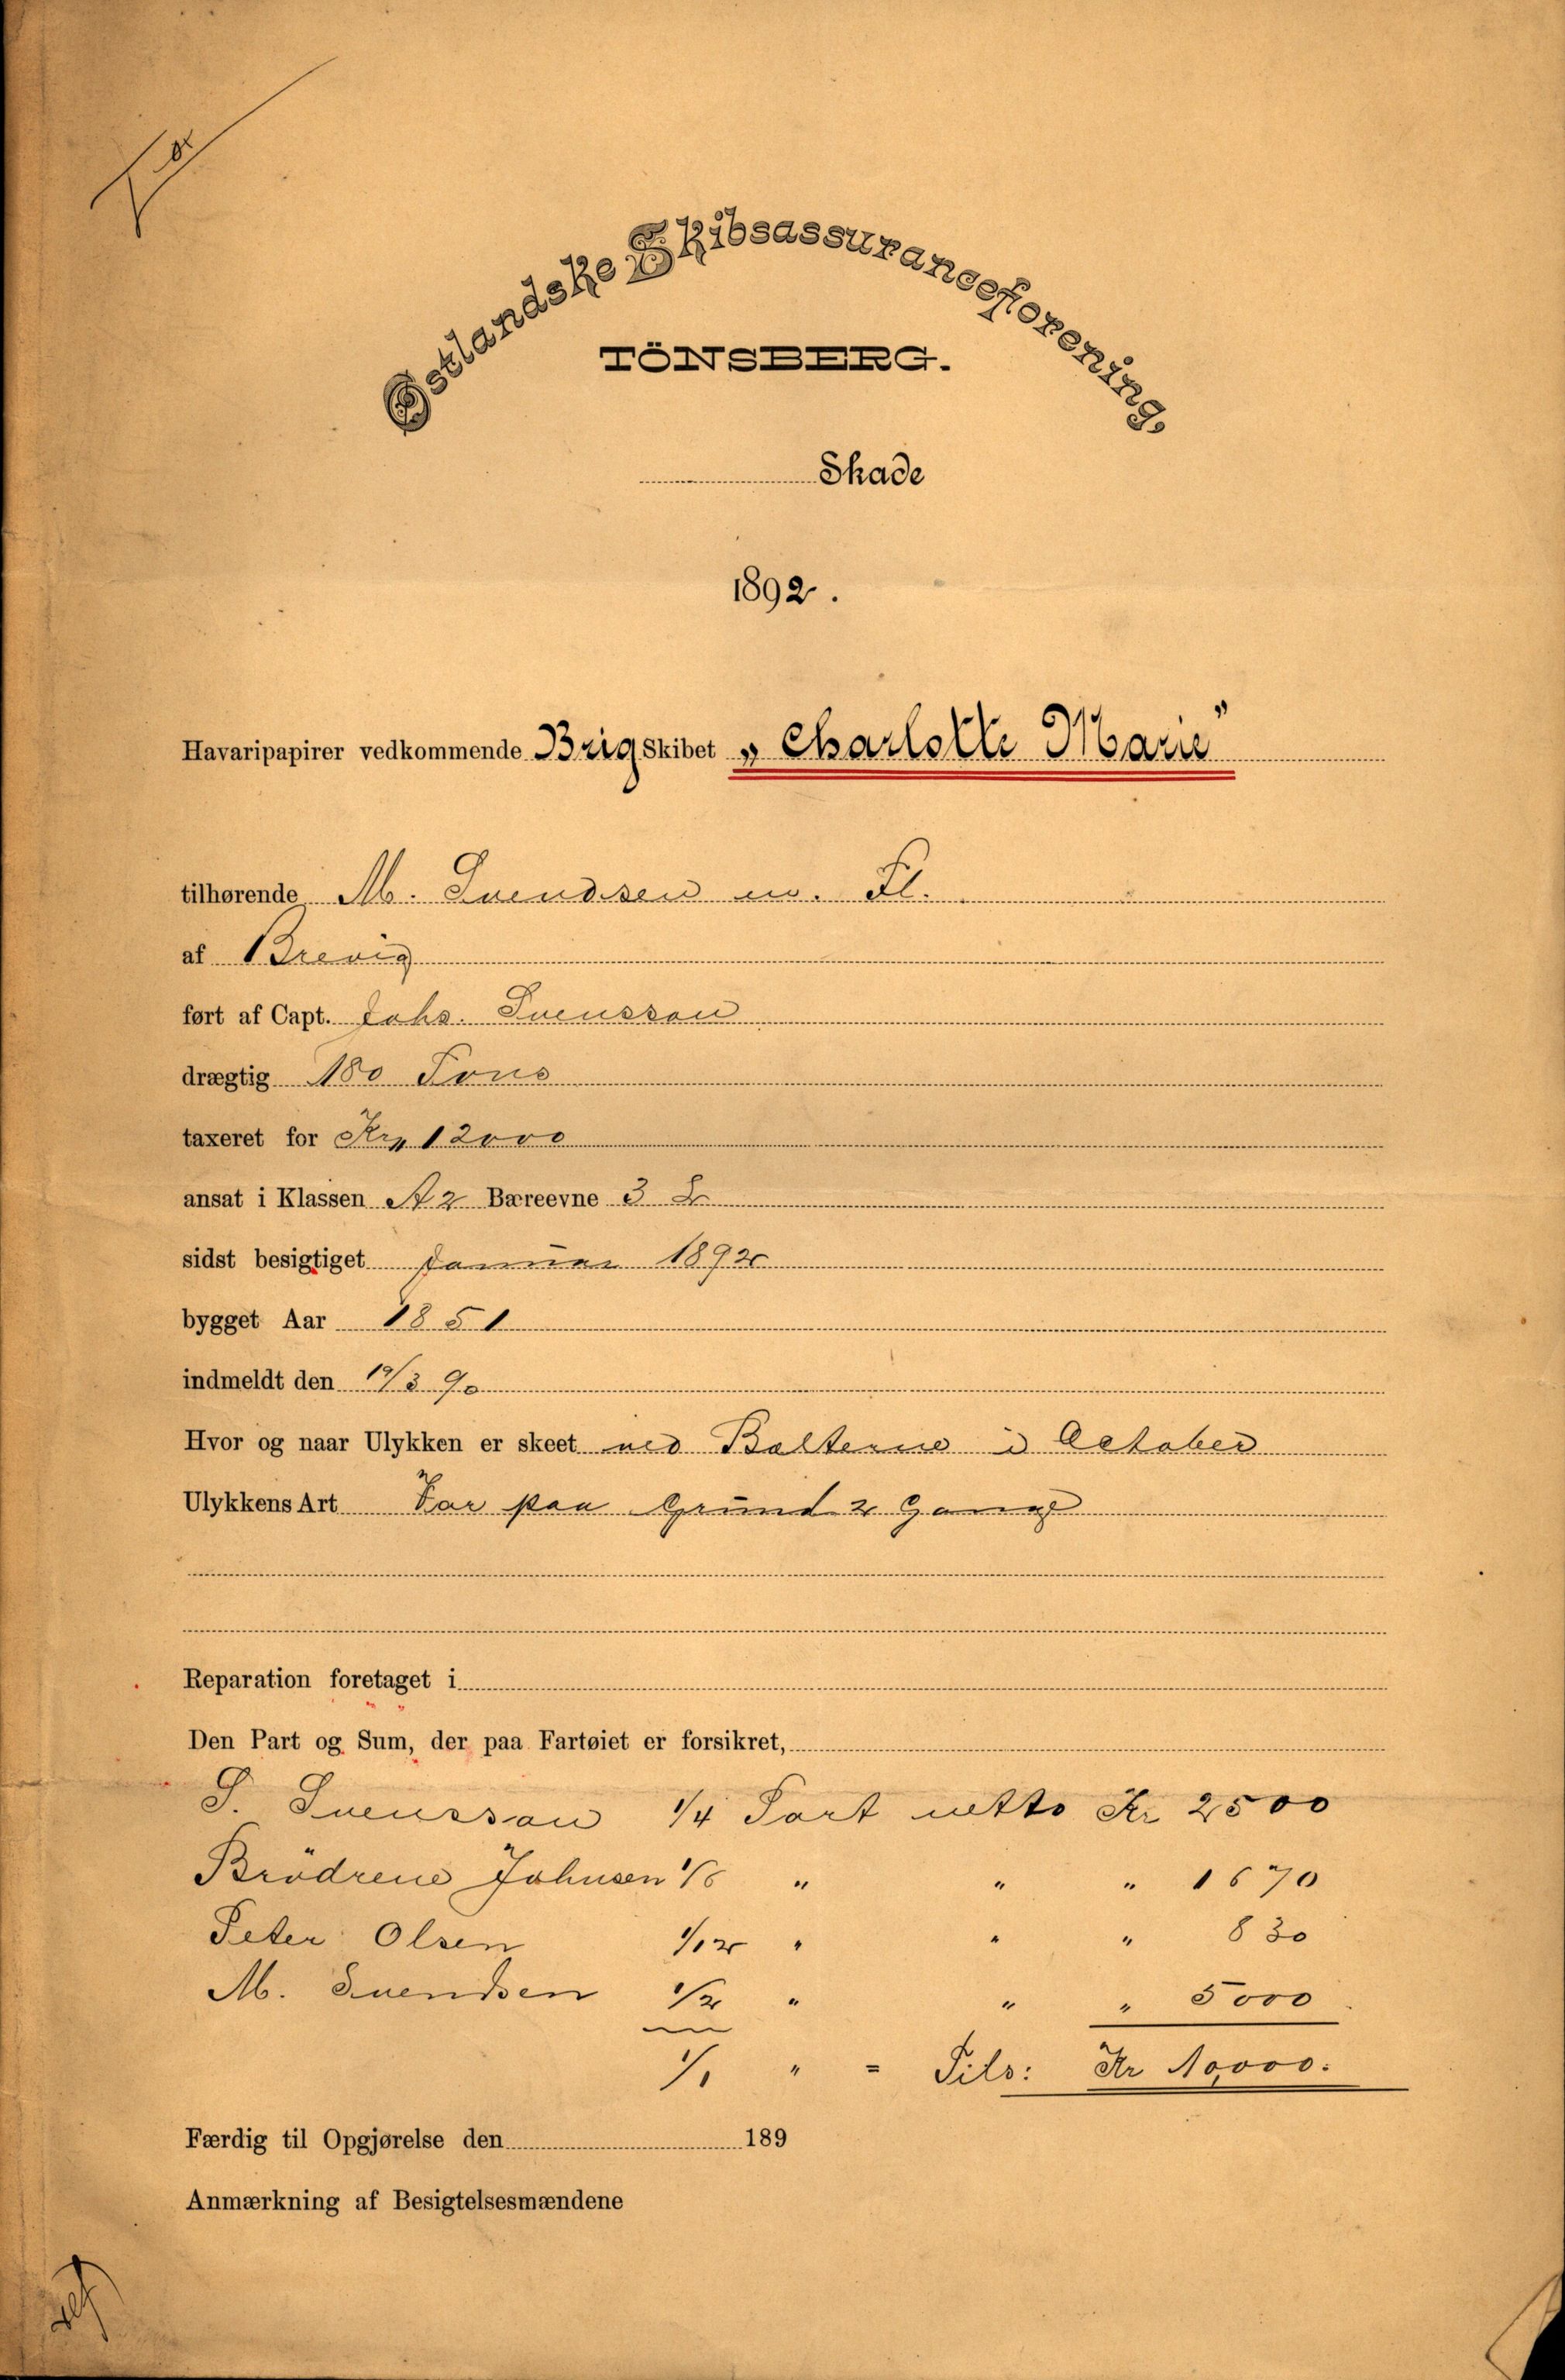 Østlandske Skibsassuranceforening,
TÖNSBERG.
Skade
1892.
Havaripapirer vedkommende Brig Skibet „Charlotte Marie"
tilhørende M. Svendsen m. Fl.
af Brevig
ført af Capt. Johs. Svensson
drægtig 180 Tons
taxeret for Kr. 12000
ansat i Klassen A 2 Bæreevne 3 L
sidst besigtiget Januar 1892
bygget Aar 1851
indmeldt den 19/3 90
Hvor og naar Ulykken er skeet ved Balterne i October
Ulykkens Art Var paa Grund 2 Gange
Reparation foretaget i
Den Part og Sum, der paa Fartøiet er forsikret,
S. Svensson 1/4 Part netto Kr 2500
Brödrene Johnsen 1/6 " " " 1670
Peter Olsen 1/12 " " " 830
M. Svendsen 1/2 " " " 5000
1/1 " = Tils: Kr 10,000.
Færdig til Opgjørelse den 189
Anmærkning af Besigtelsesmændene